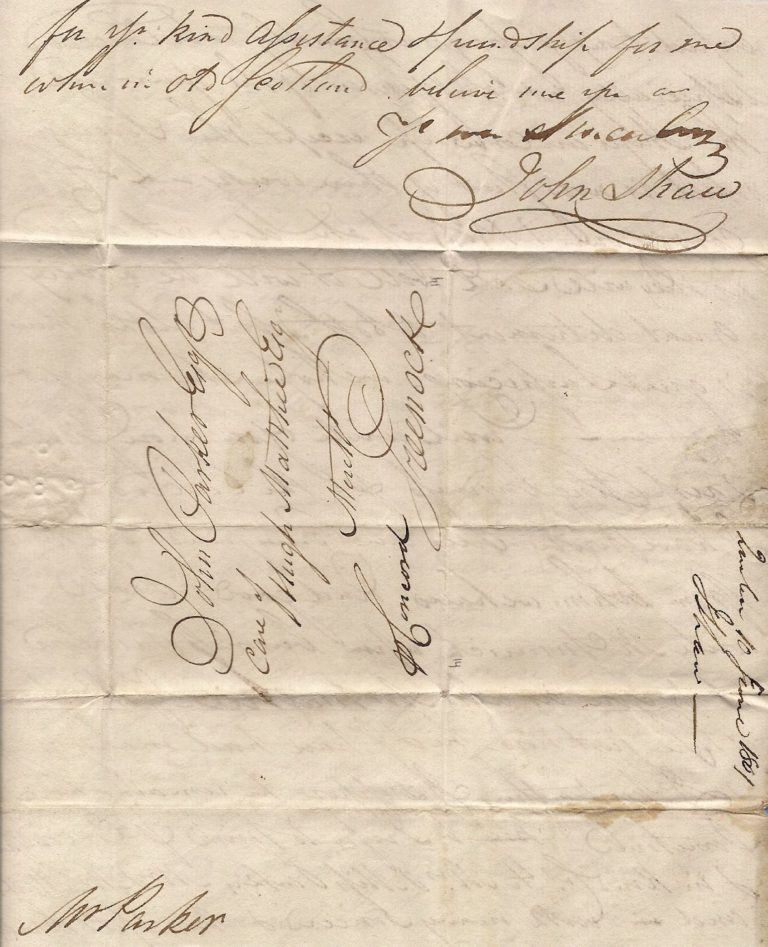 for yr. kind Assistance & friendship for me
when in old Scotland. believe me yrs
Yr sincerely
John Shaw
John Parker Esqr
Care of
Hugh Matthie Esqr
Mercht
Concord Greenock
10 June 1801
J Shaw
Mr Parker